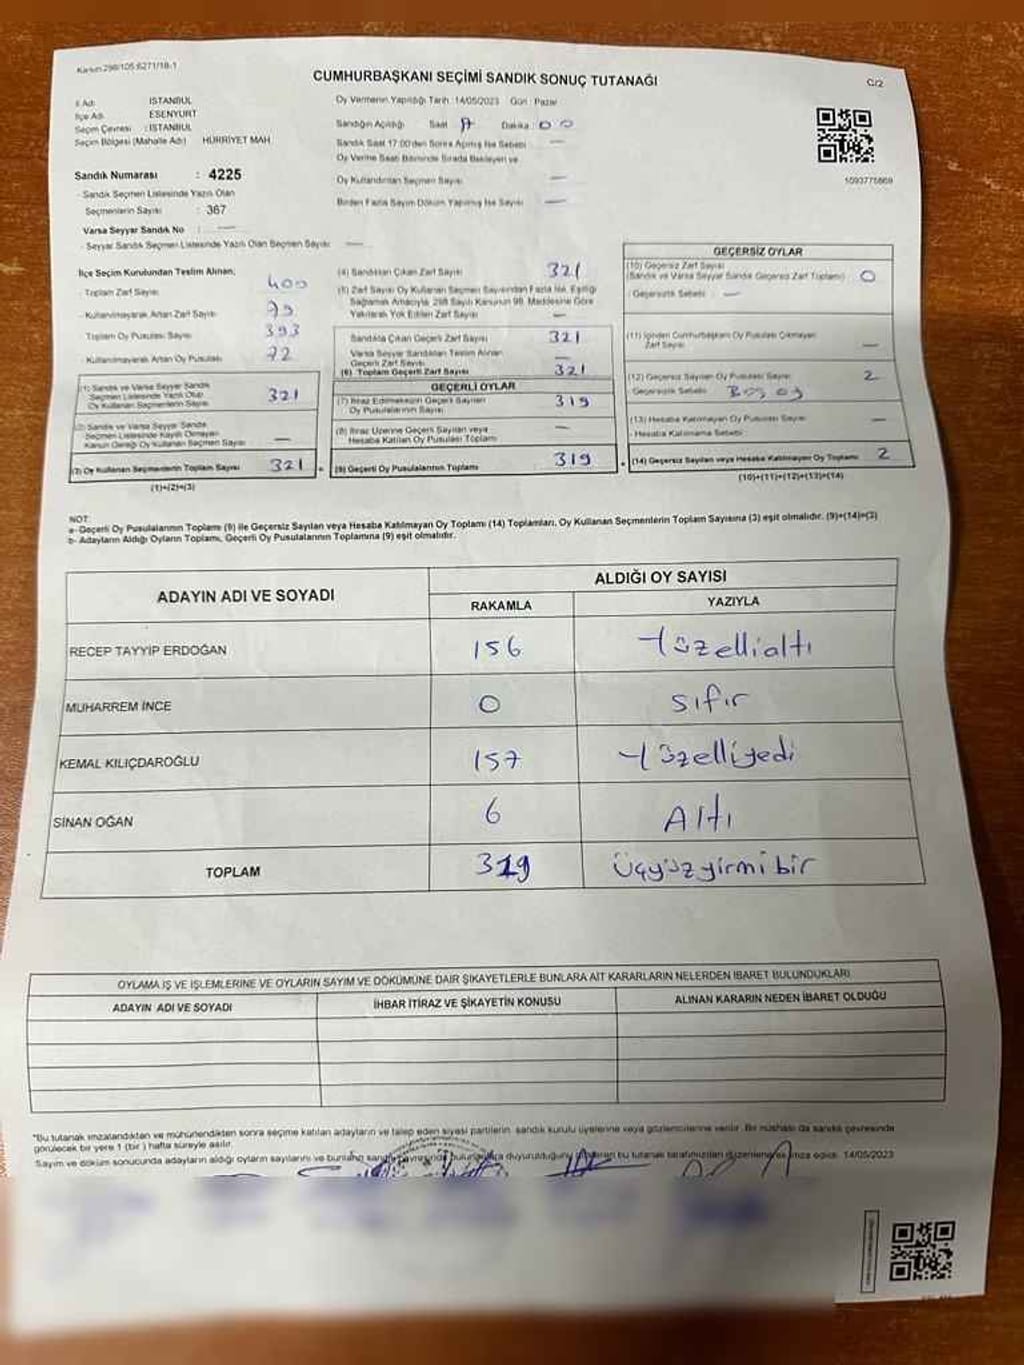 Kanun 298/105.6271/18-1
CUMHURBAŞKANI SEÇİMİ SANDIK SONUÇ TUTANAĞI
C/2
İl Adı İSTANBUL
İlçe Adı ESENYURT
Seçim Çevresi : İSTANBUL
Seçim Bölgesi (Mahalle Adı) HÜRRİYET MAH
Oy Vermenin Yapıldığı Tarih : 14/05/2023 Gün : Pazar
Sandığın Açıldığı Saat Dakika 00
Sandık Saat 17:00'den Sonra Açılmış İse Sebebi —
Oy Verme Saati Bitiminde Sırada Bekleyen ve
Oy Kullandırılan Seçmen Sayısı —
Birden Fazla Sayım Döküm Yapılmış İse Sayısı —
1093775869
Sandık Numarası : 4225
- Sandık Seçmen Listesinde Yazılı Olan
Seçmenlerin Sayısı : 367
Varsa Seyyar Sandık No : —
- Seyyar Sandık Seçmen Listesinde Yazılı Olan Seçmen Sayısı —
İlçe Seçim Kurulundan Teslim Alınan;
- Toplam Zarf Sayısı 400
- Kullanılmayarak Artan Zarf Sayısı 79
Toplam Oy Pusulası Sayısı 393
- Kullanılmayarak Artan Oy Pusulası 72
(1) Sandık ve Varsa Seyyar Sandık
Seçmen Listesinde Yazılı Olup
Oy Kullanan Seçmenlerin Sayısı 321
(2) Sandık ve Varsa Seyyar Sandık
Seçmen Listesinde Kayıtlı Olmayan
Kanun Gereği Oy Kullanan Seçmen Sayısı —
(3) Oy Kullanan Seçmenlerin Toplam Sayısı 321
(1)+(2)=(3)
(4) Sandıktan Çıkan Zarf Sayısı 321
(5) Zarf Sayısı Oy Kullanan Seçmen Sayısından Fazla İse, Eşitliği
Sağlamak Amacıyla, 298 Sayılı Kanunun 98. Maddesine Göre
Yakılarak Yok Edilen Zarf Sayısı —
Sandıkta Çıkan Geçerli Zarf Sayısı 321
Varsa Seyyar Sandıktan Teslim Alınan
Geçerli Zarf Sayısı —
(6) Toplam Geçerli Zarf Sayısı 321
GEÇERLİ OYLAR
(7) İtiraz Edilmeksizin Geçerli Sayılan
Oy Pusulalarının Sayısı 319
(8) İtiraz Üzerine Geçerli Sayılan veya
Hesaba Katılan Oy Pusulası Toplamı —
(9) Geçerli Oy Pusulalarının Toplamı 319
GEÇERSİZ OYLAR
(10) Geçersiz Zarf Sayısı
(Sandık ve Varsa Seyyar Sandık Geçersiz Zarf Toplamı) 0
- Geçersizlik Sebebi : —
(11) İçinden Cumhurbaşkanı Oy Pusulası Çıkmayan
Zarf Sayısı —
(12) Geçersiz Sayılan Oy Pusulası Sayısı 2
Geçersizlik Sebebi Boş oy
(13) Hesaba Katılmayan Oy Pusulası Sayısı —
- Hesaba Katılmama Sebebi
(14) Geçersiz Sayılan veya Hesaba Katılmayan Oy Toplamı 2
(10)+(11)+(12)+(13)=(14)
NOT:
a- Geçerli Oy Pusulalarının Toplamı (9) ile Geçersiz Sayılan veya Hesaba Katılmayan Oy Toplamı (14) Toplamları, Oy Kullanan Seçmenlerin Toplam Sayısına (3) eşit olmalıdır. (9)+(14)=(3)
b- Adayların Aldığı Oyların Toplamı, Geçerli Oy Pusulalarının Toplamına (9) eşit olmalıdır.
ADAYIN ADI VE SOYADI
ALDIĞI OY SAYISI
RAKAMLA YAZIYLA
RECEP TAYYİP ERDOĞAN 156 Yüzellialtı
MUHARREM İNCE 0 sıfır
KEMAL KILIÇDAROĞLU 157 Yüzelliyedi
SİNAN OĞAN 6 Altı
TOPLAM 319 Üçyüzyirmibir
OYLAMA İŞ VE İŞLEMLERİNE VE OYLARIN SAYIM VE DÖKÜMÜNE DAİR ŞİKAYETLERLE BUNLARA AİT KARARLARIN NELERDEN İBARET BULUNDUKLARI
ADAYIN ADI VE SOYADI İHBAR İTİRAZ VE ŞİKAYETİN KONUSU ALINAN KARARIN NEDEN İBARET OLDUĞU
*Bu tutanak imzalandıktan ve mühürlendikten sonra seçime katılan adayların ve talep eden siyasi partilerin sandık kurulu üyelerine veya gözlemcilerine verilir. Bir nüshası da sandık çevresinde
görülecek bir yere 1 (bir) hafta süreyle asılır.
Sayım ve döküm sonucunda adayların aldığı oyların sayılarını ve bunların sandık çevresinde duyurulduğunu bu tutanak tarafımızdan düzenlenerek imza edildi. 14/05/2023